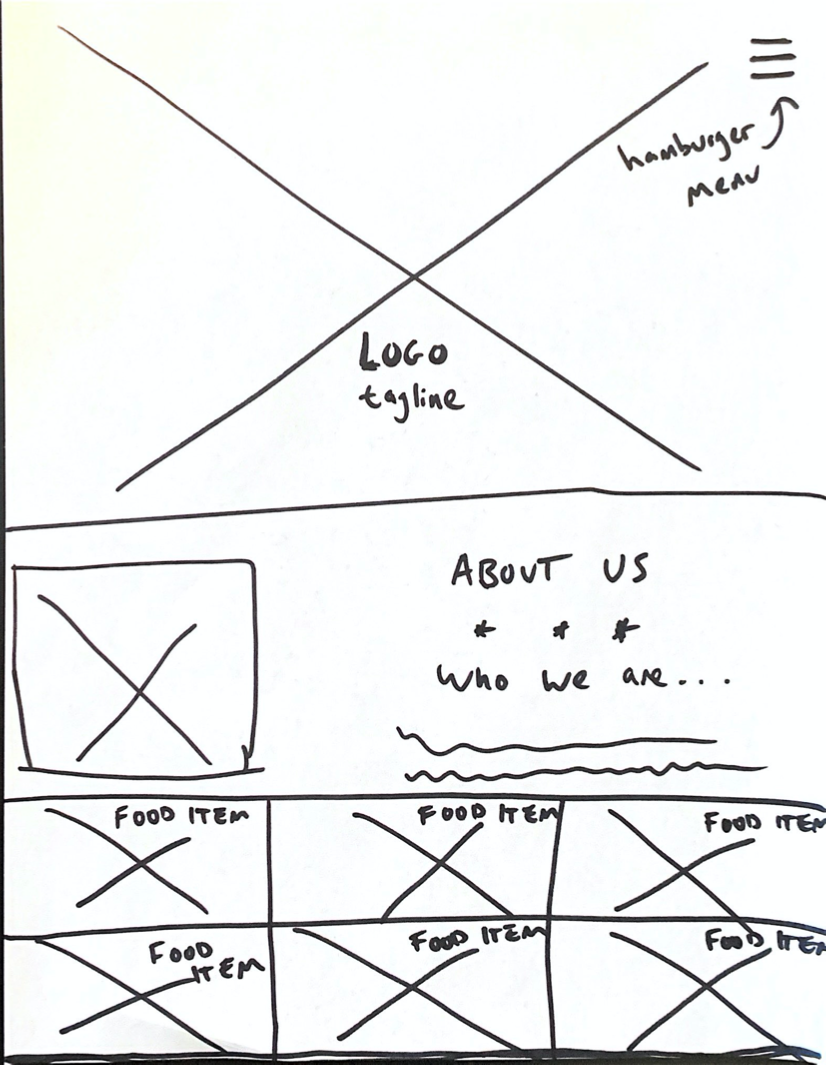 hamburger
menu
LOGO
tagline
ABOUT US
* * *
Who we are...
FOOD ITEM
FOOD ITEM
FOOD ITEM
FOOD
ITEM
FOOD ITEM
FOOD ITEM